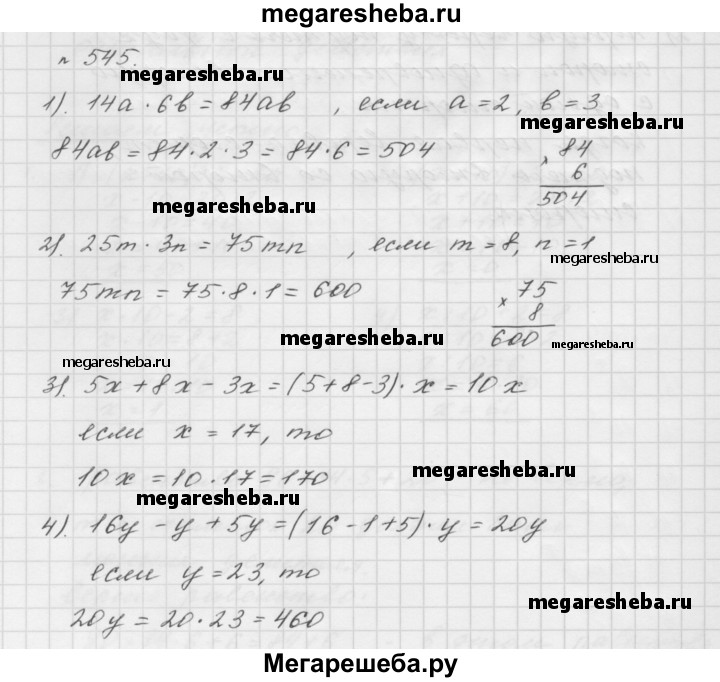 megaresheba.ru
№ 545.
megaresheba.ru
1). 14a · 6b = 84ab , если a = 2, b = 3
megaresheba.ru
84ab = 84 · 2 · 3 = 84 · 6 = 504
× 84
6
504
megaresheba.ru
2). 25m · 3n = 75mn , если m = 8, n = 1
megaresheba.ru
75mn = 75 · 8 · 1 = 600
× 75
8
600
megaresheba.ru
megaresheba.ru
megaresheba.ru
3). 5x + 8x - 3x = (5 + 8 - 3) · x = 10x
если x = 17, то
10x = 10 · 17 = 170
megaresheba.ru
megaresheba.ru
4). 16y - y + 5y = (16 - 1 + 5) · y = 20y
если y = 23, то
20y = 20 · 23 = 460
megaresheba.ru
Мегарешеба.ру